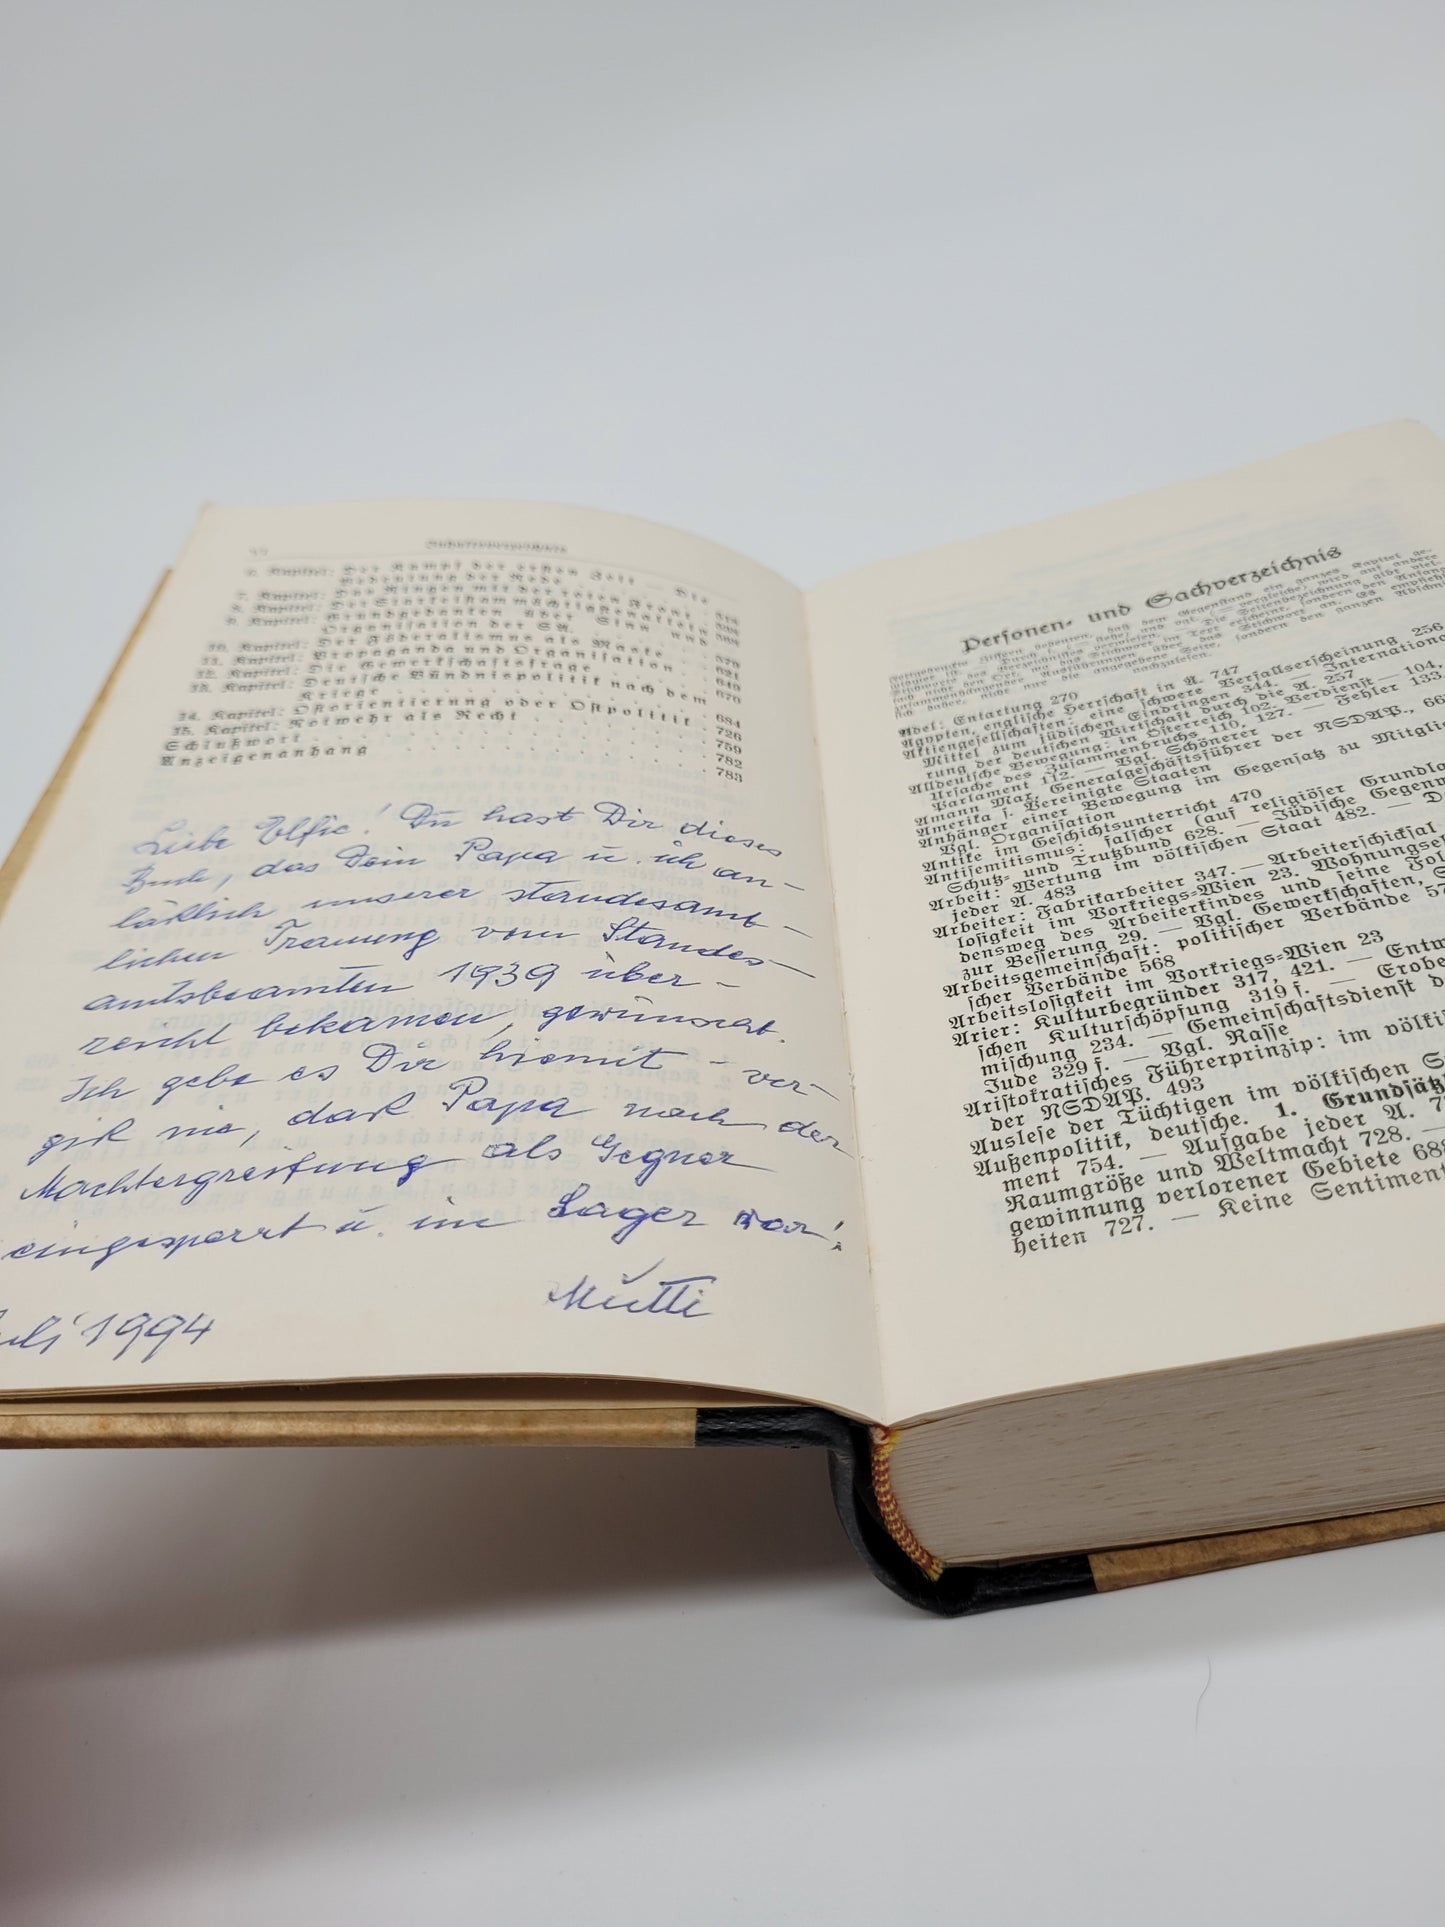 Inhaltsverzeichnis
6. Kapitel: Der Kampf der ersten Zeit — Die
Bedeutung der Rede
7. Kapitel: Das Ringen mit der roten Front
8. Kapitel: Der Starke ist am mächtigsten allein
9. Kapitel: Grundgedanken über Sinn und
Organisation der SA.
10. Kapitel: Der Föderalismus als Maske . . .
11. Kapitel: Propaganda und Organisation . . 621
12. Kapitel: Die Gewerkschaftsfrage . . . . 649
13. Kapitel: Deutsche Bündnispolitik nach dem 670
Kriege . . . . . . . . . . . 684
14. Kapitel: Ostorientierung oder Ostpolitik . . 726
15. Kapitel: Notwehr als Recht . . . . . . . 759
Schlußwort . . . . . . . . . . . . . 782
Anzeigenanhang . . . . . . . . . . . 783
Liebe Elfie! Du hast Dir dieses
Buch, das Dein Papa u. ich an-
läßlich unserer standesamt-
lichen Trauung vom Standes-
amtsbeamten 1939 über-
reicht bekamen, gewünscht.
Ich gebe es Dir hiemit – ver-
giß nie, daß Papa nach der
Machtergreifung als Gegner
eingesperrt u. im Lager war!
Mutti
Juli 1994
Personen- und Sachverzeichnis
Adel: Entartung 270
Ägypten, englische Herrschaft in Ä. 747
Aktiengesellschaften: eine schwere Verfallserscheinung 256
Mittel zum jüdischen Eindringen 344. — Internationa
rung der deutschen Wirtschaft durch die A. 257
Alldeutsche Bewegung: in Österreich 102. Verdienst — 104,
Ursache des Zusammenbruchs 110, 127. — Fehler 133.
Parlament 112. — Vgl. Schönerer
Amann Max, Generalgeschäftsführer der NSDAP., 66
Amerika s. Vereinigte Staaten
Anhänger einer Bewegung im Gegensatz zu Mitgli
Vgl. Organisation
Antike im Geschichtsunterricht 470
Antisemitismus: falscher (auf religiöser Grundlo
Schutz- und Trutzbund 628. — Jüdische Gegenw
Arbeit: Wertung im völkischen Staat 482. — D
jeder A. 483
Arbeiter: Fabrikarbeiter 347. — Arbeiterschicksal
losigkeit im Vorkriegs-Wien 23. Wohnungsel
densweg des Arbeiterkindes und seine Fol
zur Besserung 29. — Vgl. Gewerkschaften, S
Arbeitsgemeinschaft: politischer Verbände 57
scher Verbände 568
Arbeitslosigkeit im Vorkriegs-Wien 23
Arier: Kulturbegründer 317, 421. — Entw
schen Kulturschöpfung 319 f. — Erobe
mischung 234. — Gemeinschaftsdienst d
Jude 329 f. — Vgl. Rasse
Aristokratisches Führerprinzip: im völki
der NSDAP. 493
Auslese der Tüchtigen im völkischen S
Außenpolitik, deutsche. 1. Grundsätz
ment 754. — Aufgabe jeder A. 7
Raumgröße und Weltmacht 728. —
gewinnung verlorener Gebiete 688
heiten 727. — Keine Sentiment